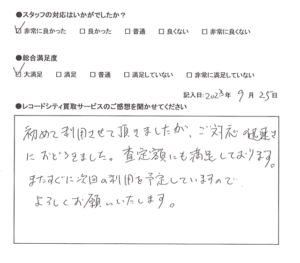 ●スタッフの対応はいかがでしたか？
☑ 非常に良かった □ 良かった □ 普通 □ 良くない □ 非常に良くない
●総合満足度
☑ 大満足 □ 満足 □ 普通 □ 満足していない □ 非常に満足していない
記入日:2023年 9月 25日
●レコードシティ買取サービスのご感想を聞かせてください
初めて利用させて頂きましたが、ご対応の迅速さ
におどろきました。査定額にも満足しております。
またすぐに次回の利用を予定していますので
よろしくお願いいたします。